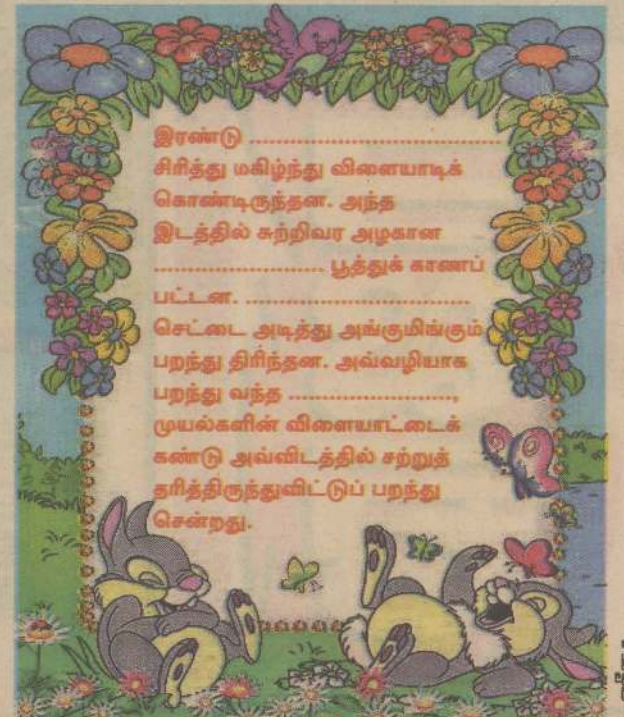 இரண்டு ................................
சிரித்து மகிழ்ந்து விளையாடிக்
கொண்டிருந்தன. அந்த
இடத்தில் சுற்றிவர அழகான
...................... பூத்துக் காணப்
பட்டன. .............................
செட்டை அடித்து அங்குமிங்கும்
பறந்து திரிந்தன. அவ்வழியாக
பறந்து வந்த .....................,
முயல்களின் விளையாட்டைக்
கண்டு அவ்விடத்தில் சற்றுத்
தரித்திருந்துவிட்டுப் பறந்து
சென்றது.